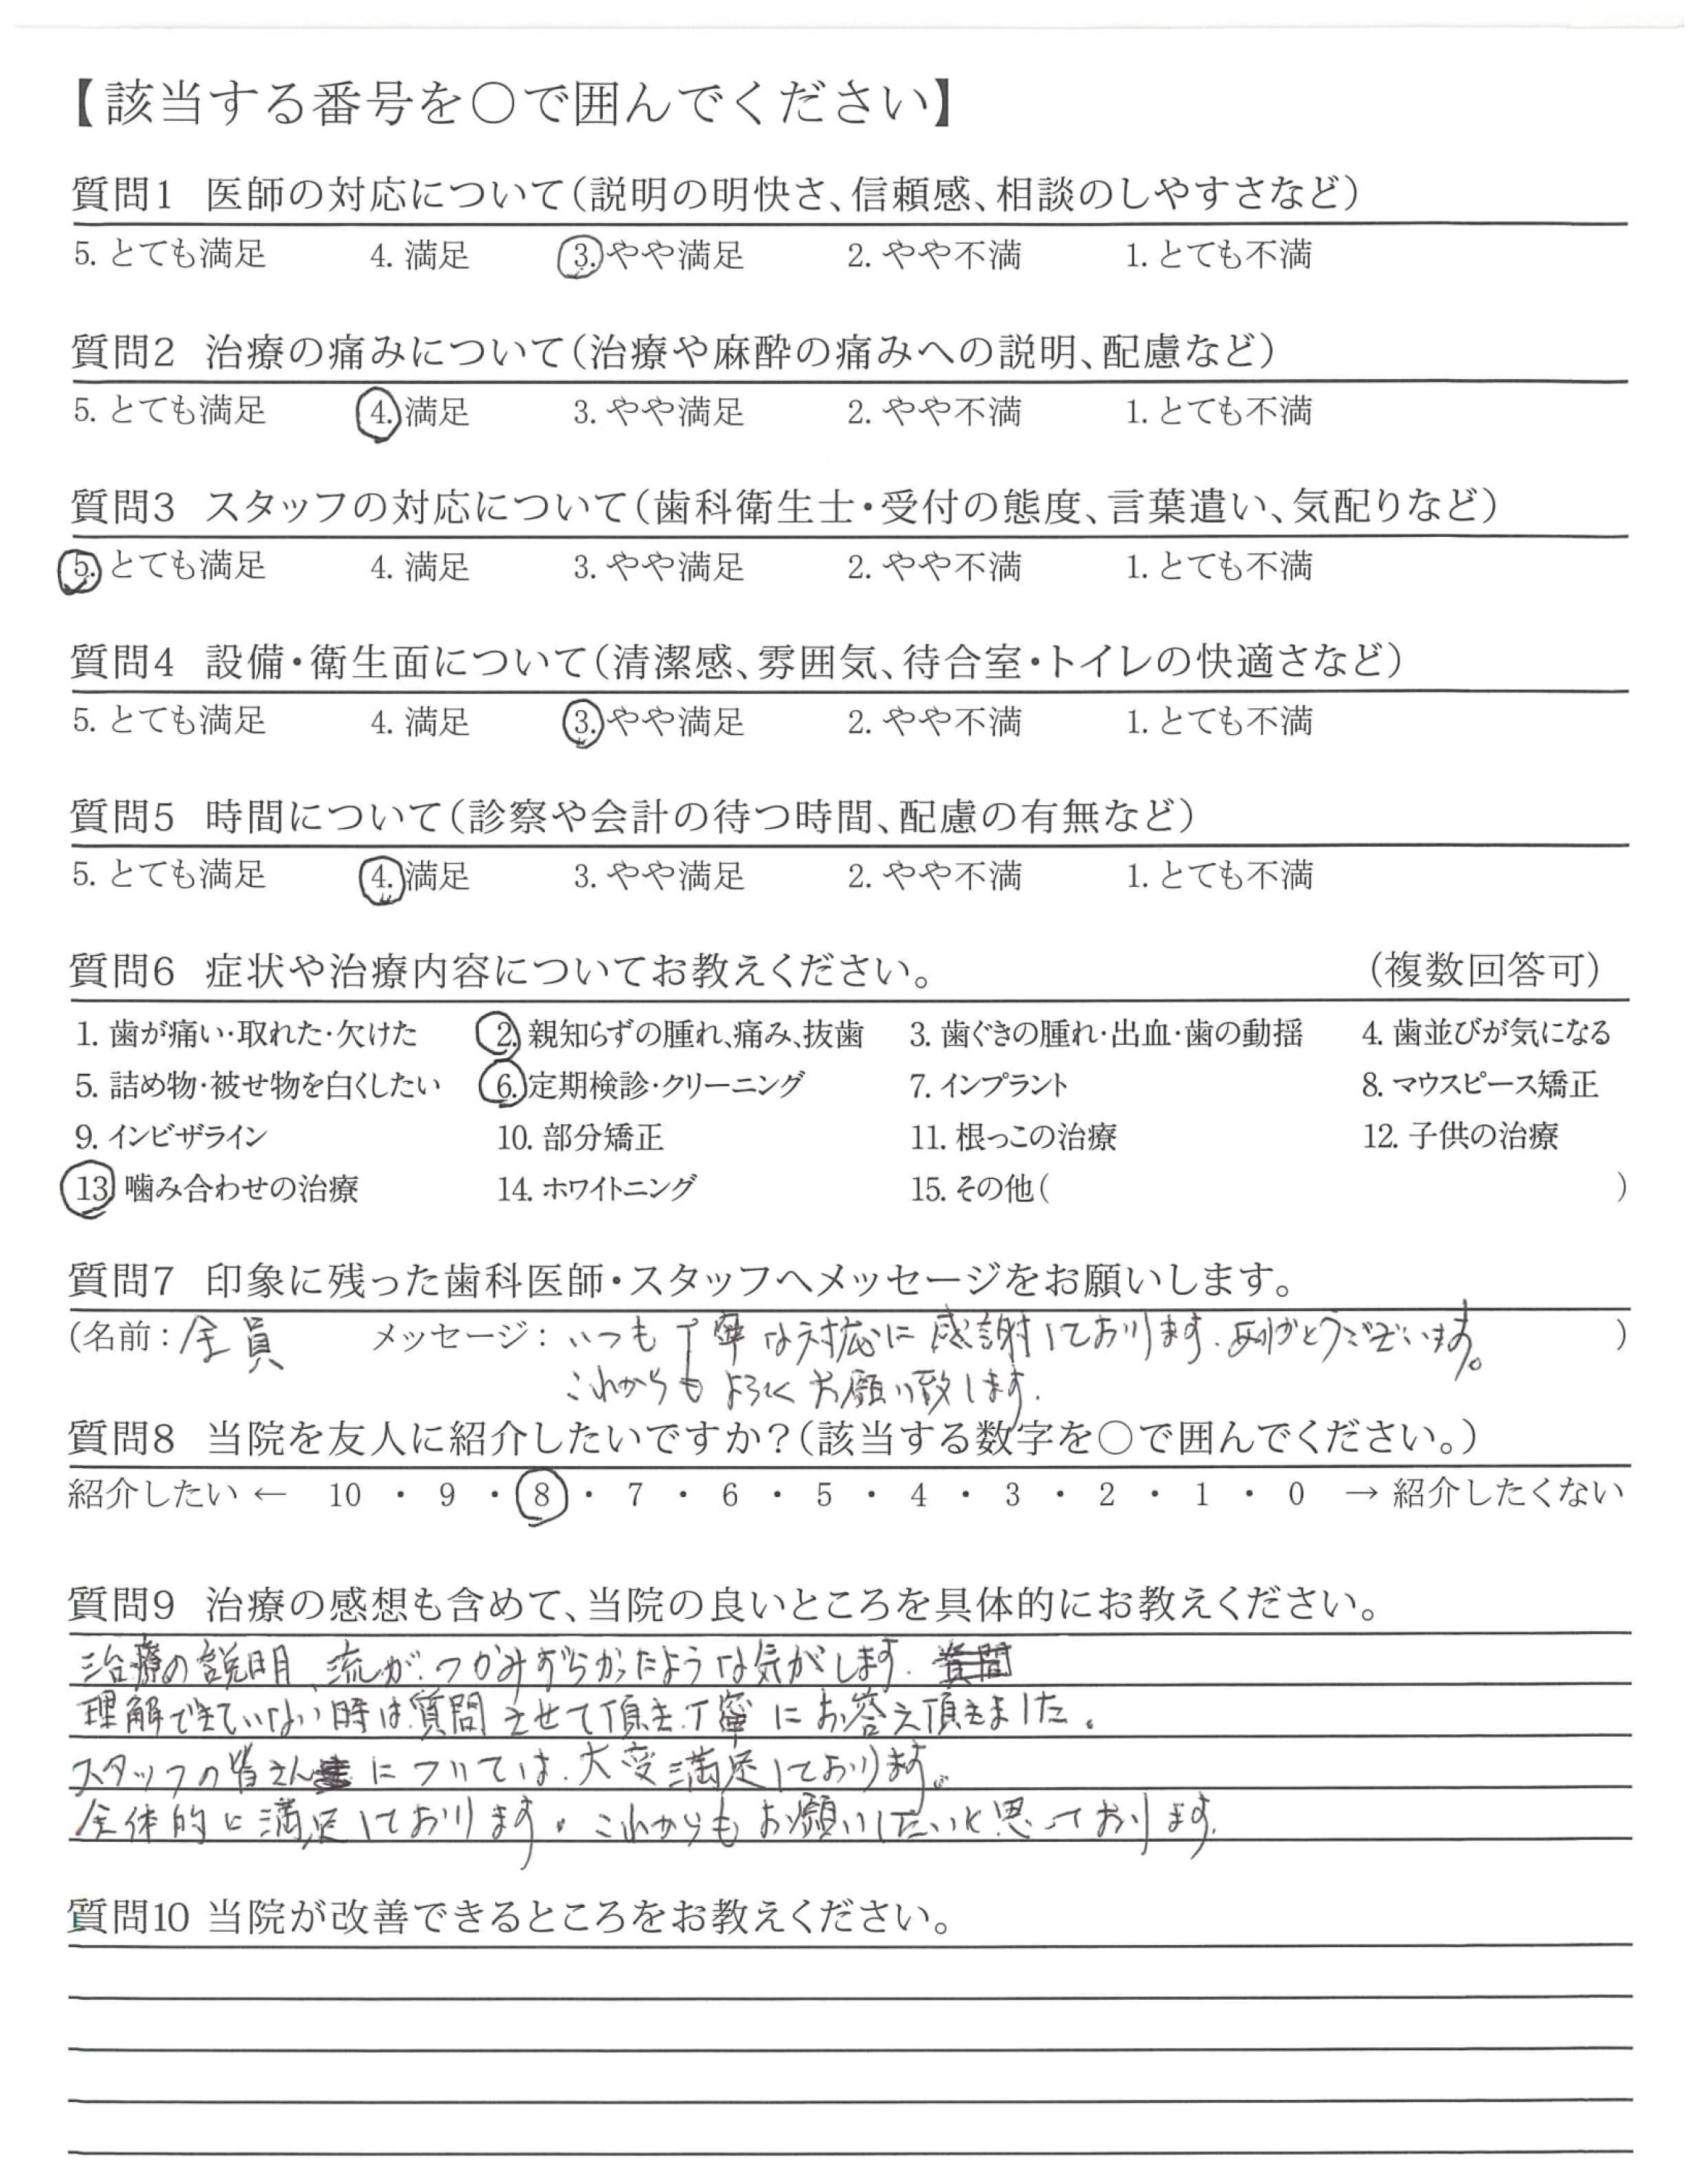 【該当する番号を○で囲んでください】
質問1 医師の対応について(説明の明快さ、信頼感、相談のしやすさなど)
5. とても満足 4. 満足 3. やや満足 2. やや不満 1. とても不満
質問2 治療の痛みについて(治療や麻酔の痛みへの説明、配慮など)
5. とても満足 4. 満足 3. やや満足 2. やや不満 1. とても不満
質問3 スタッフの対応について(歯科衛生士・受付の態度、言葉遣い、気配りなど)
5. とても満足 4. 満足 3. やや満足 2. やや不満 1. とても不満
質問4 設備・衛生面について(清潔感、雰囲気、待合室・トイレの快適さなど)
5. とても満足 4. 満足 3. やや満足 2. やや不満 1. とても不満
質問5 時間について(診察や会計の待つ時間、配慮の有無など)
5. とても満足 4. 満足 3. やや満足 2. やや不満 1. とても不満
質問6 症状や治療内容についてお教えください。 (複数回答可)
1. 歯が痛い・取れた・欠けた 2. 親知らずの腫れ、痛み、抜歯 3. 歯ぐきの腫れ・出血・歯の動揺 4. 歯並びが気になる
5. 詰め物・被せ物を白くしたい 6. 定期検診・クリーニング 7. インプラント 8. マウスピース矯正
9. インビザライン 10. 部分矯正 11. 根っこの治療 12. 子供の治療
13. 噛み合わせの治療 14. ホワイトニング 15. その他( )
質問7 印象に残った歯科医師・スタッフへメッセージをお願いします。
(名前:全員 メッセージ:いつも丁寧な対応に感謝しております。ありがとうございます。)
これからもよろしくお願い致します。
質問8 当院を友人に紹介したいですか?(該当する数字を○で囲んでください。)
紹介したい ← 10 ・ 9 ・ 8 ・ 7 ・ 6 ・ 5 ・ 4 ・ 3 ・ 2 ・ 1 ・ 0 → 紹介したくない
質問9 治療の感想も含めて、当院の良いところを具体的にお教えください。
治療の説明、流れがつかみずらかったような気がします。質問
理解できていない時は質問させて頂き、丁寧にお答え頂きました。
スタッフの皆さんについては、大変満足しております。
全体的に満足しております。これからもお願いしたいと思っております。
質問10 当院が改善できるところをお教えください。